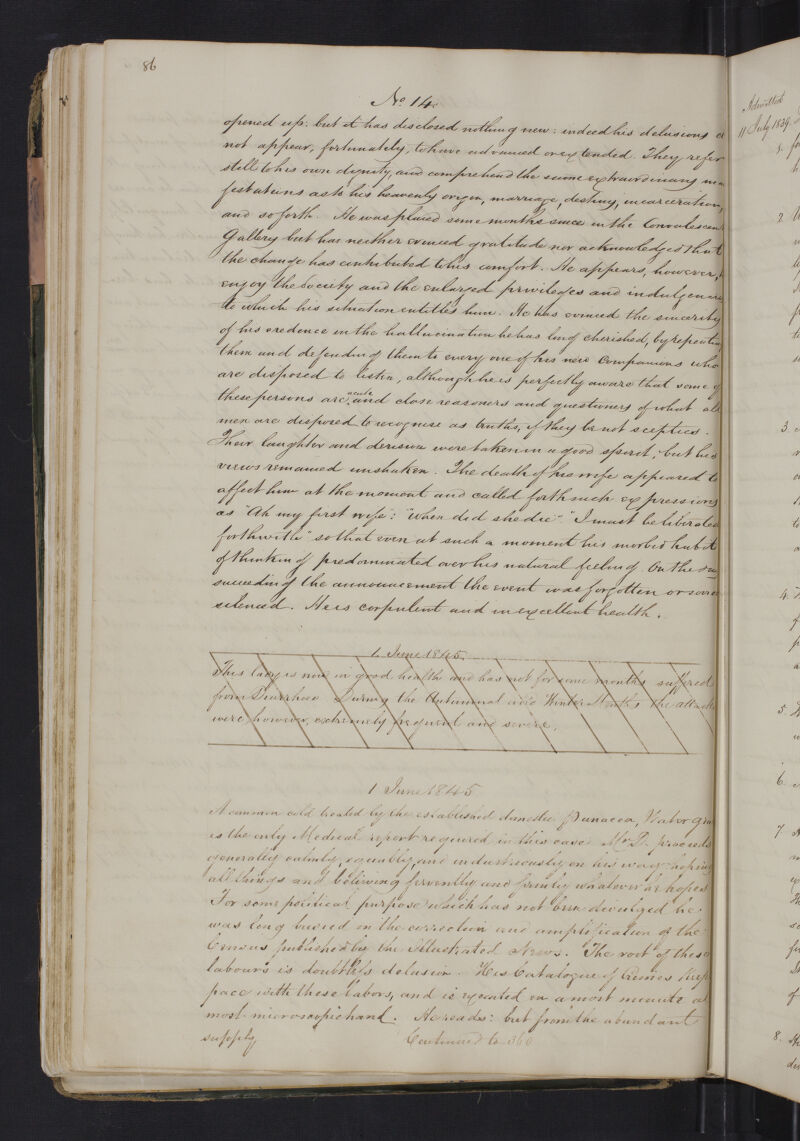 86
No 14.
opened up: but it has disclosed nothing new: indeed his delusions d
not appear, fortunately, to have advanced or extended. They refer
still to his own dignity, and comprehend the same extraordinary ma
festations as to his heavenly origin, marriage, destiny, incarceration,
and so forth. He was placed some months since in the Convalescent
Gallery but has neither evinced gratitude nor acknowledged that
the change has contributed to his comfort. He appears, however, t
enjoy the Society and the enlarged privileges and indulgence
to which his situation entitles him. He has evinced the sincerity
of his credence in the hallucination he has long cherished, by repeating
them and defending them to every one of his new Companions who
are disposed to listen, although he is perfectly aware that some of
these persons are acute and close reasoners and questioners of what all
men are disposed to recognise as truths, if they be not sceptics.
Their laughter and derision were taken in a good spirit; but his
views remained unshaken. The death of his wife appeared to
affect him at the moment and called forth such expressions
as "Ah my first wife": "when did she die" "I must be liberated
forthwith" so that even at such a moment his morbid habit
of thinking predominated over his natural feeling. On the day
succeeding the announcement the event was forgotten or sorrow
silenced. He is corpulent and in excellent health.
1 June 1845.
This lady is now in good health and has not for some months suffered
from Diarrhoea. During the Autumnal and Winter Months the attacks
were, however, extremely frequent and severe.
1 June 1845
A common cold treated by the established domestic Panacea, Water gru
is the only Medical report required in this case. Mr D. proceeds
generally calmly, equably, and industriously on his way: hoping
all things and believing fervently and firmly whatever he hopes
For some political purpose which has not been divulged he
was long busied in the correction and amplification of the
Census published in the Illustrated News. The root of these
labours is doubtless delusion. His Catalogue of Crimes keep
pace with these labors, and is executed in a most minute al
most microscopic hand. He reads: but from the abundant
supply
Continued to 360
Admitted
11 July 1839.
1.
2
3.
4.
5.
6
7
8.